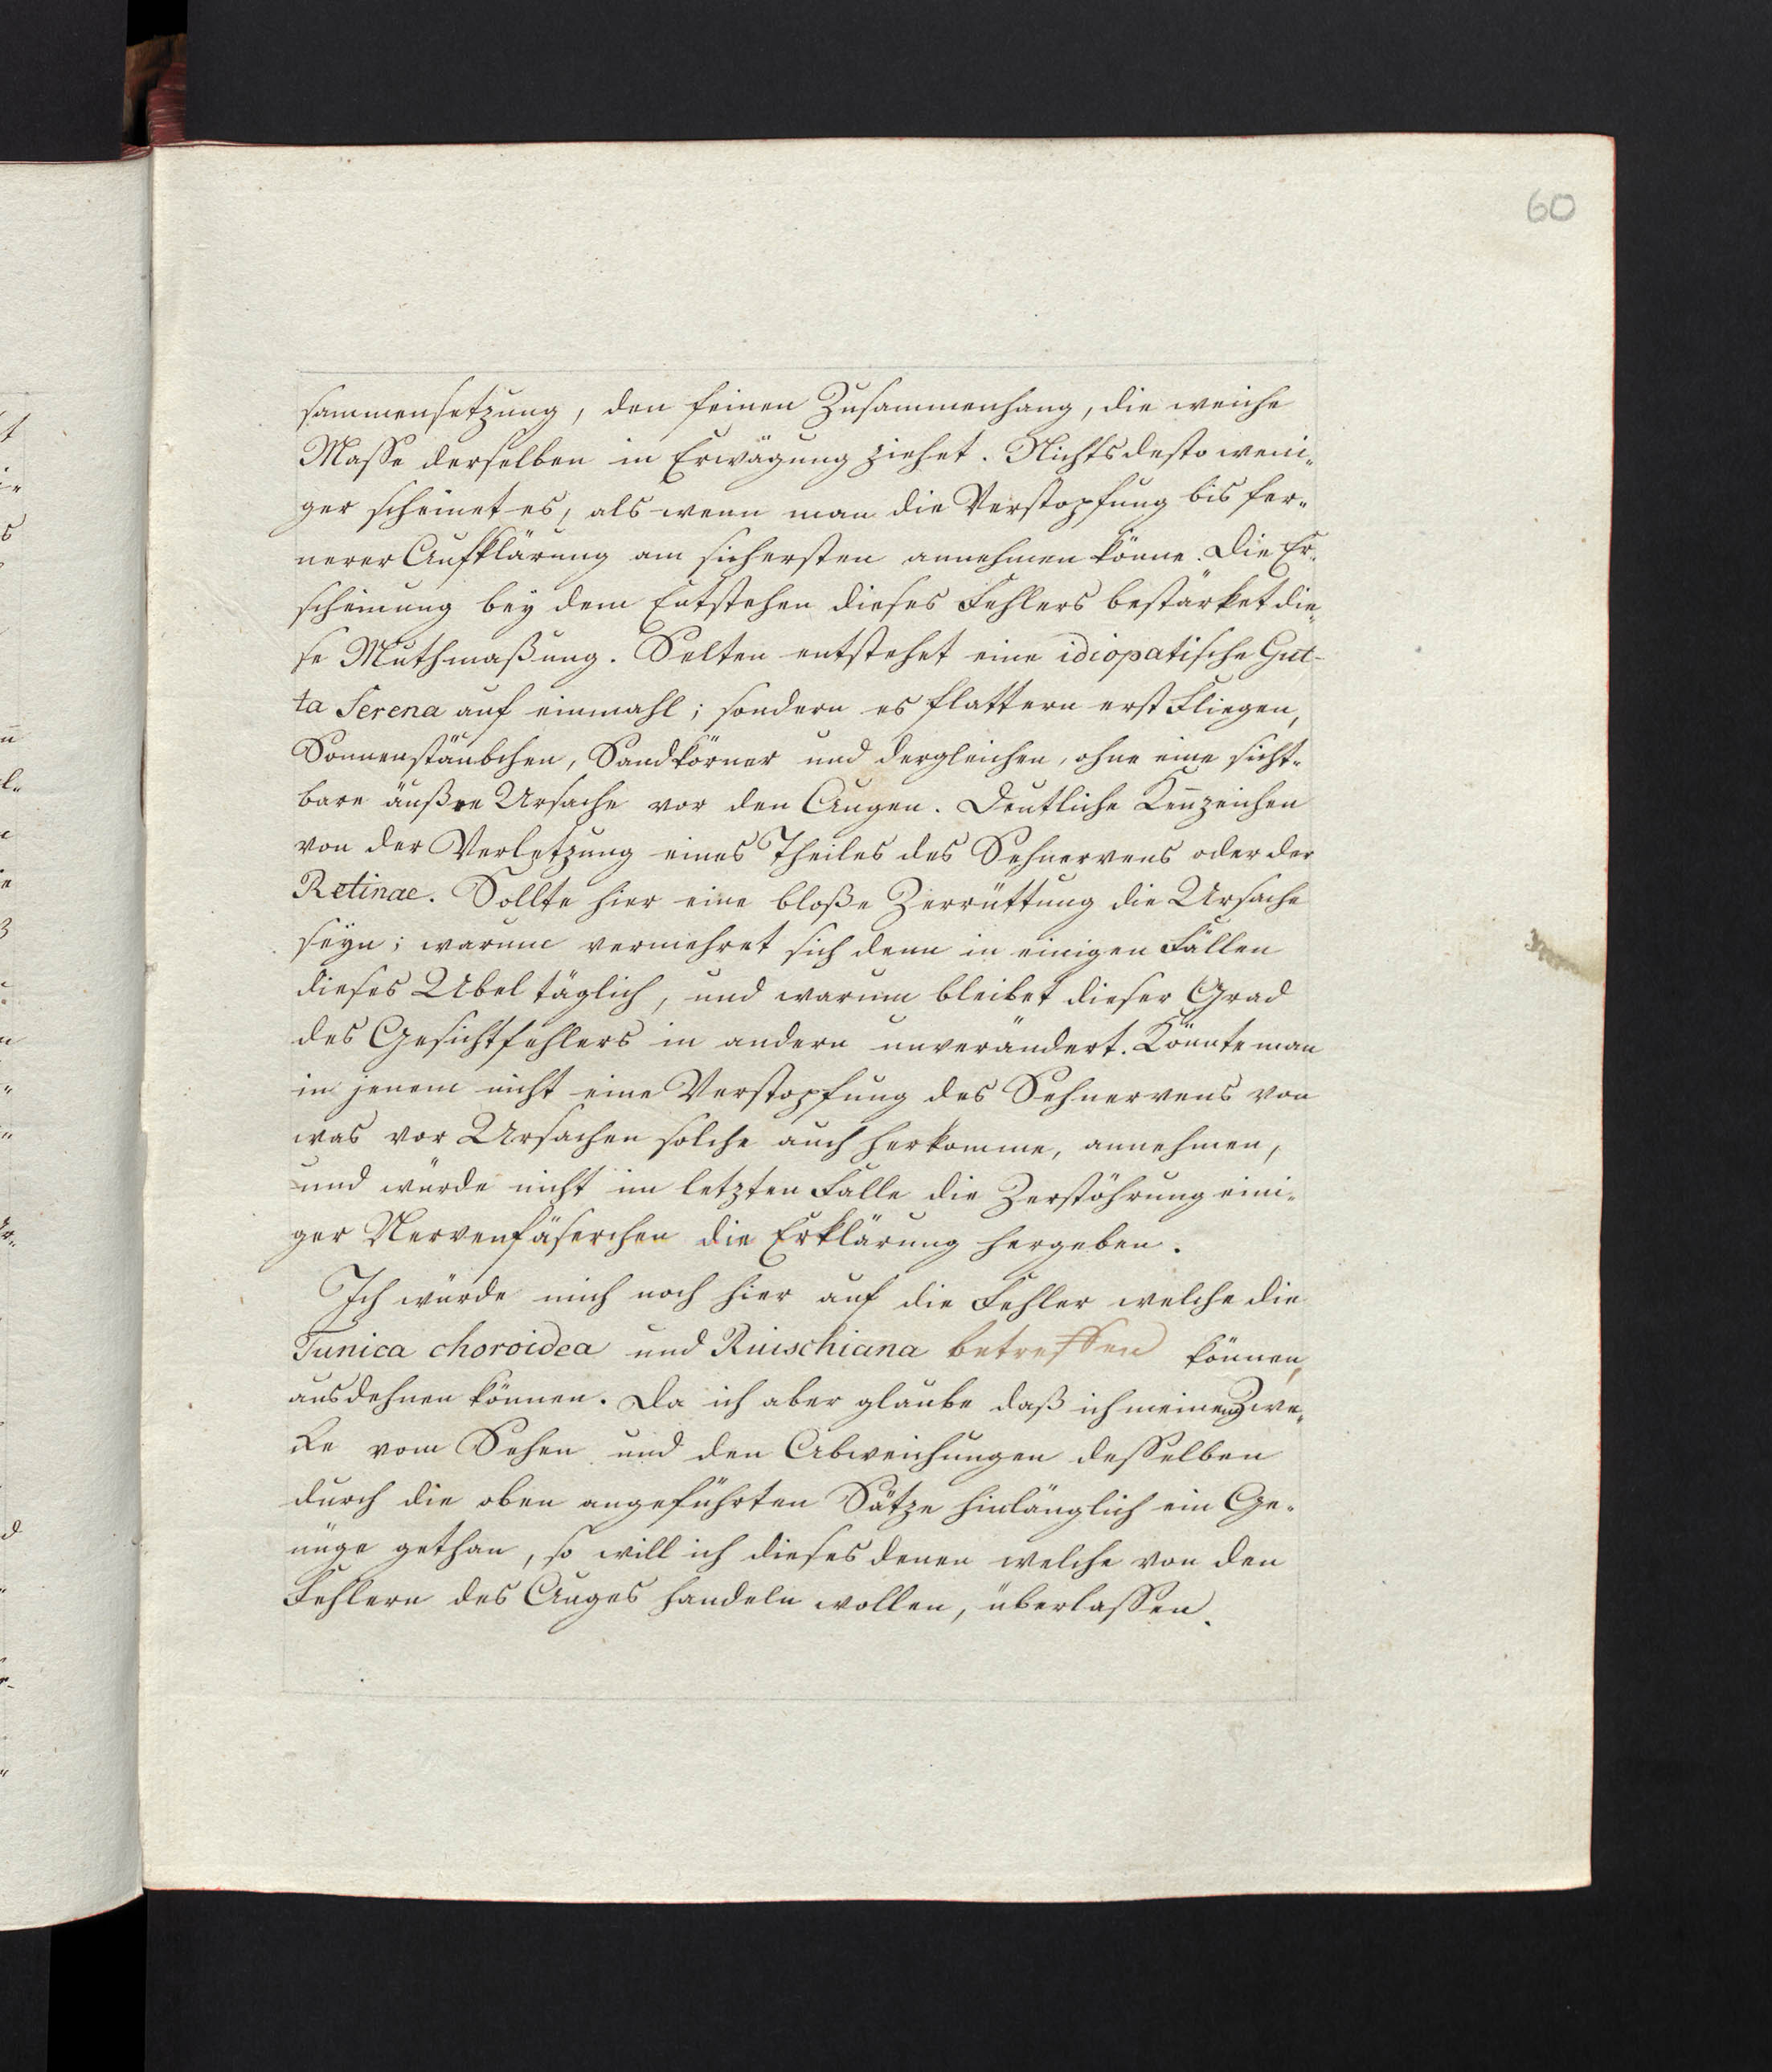 60
sammensetzung, den feinen Zusammenhang, die weiche
Masse derselben in Erwägung ziehet. Nichts desto weni-
ger scheinet es, als wenn man die Verstopfung bis fer-
nerer Aufklärung am sichersten annehmen könne. Die Er-
scheinung bey dem Entstehen dieses Fehlers bestärket die-
se Muthmaßung. Selten entstehet eine idiopatische Gut-
ta Serena auf einmahl; sondern es flattern erst Fliegen,
Sonnenstäubchen, Sandkörner und dergleichen, ohne eine sicht-
bare äußre Ursache vor den Augen. Deutliche Keñzeichen
von der Verletzung eines Theiles des Sehnervens oder der
Retinae. Sollte hier eine bloße Zerrüttung die Ursache
seyn; warum vermehret sich denn in einigen Fällen
dieses Ubel täglich, und warum bleibet dieser Grad
des Gesichtfehlers in andern unverändert. Könnte man
in jenem nicht eine Verstopfung des Sehnervens von
was vor Ursachen solche auch herkomme, annehmen,
und würde nicht im letzten Falle die Zerstöhrung eini-
ger Nervenfäserchen die Erklärung hergeben.
Ich würde mich noch hier auf die Fehler welche die
Tunica choroidea und Ruischiana betreffen können,
ausdehnen können. Da ich aber glaube daß ich meinem Zwe-
cke vom Sehen und den Abweichungen desselben
durch die oben angeführten Sätze hinlänglich ein Ge-
nüge gethan, so will ich dieses denen welche von den
Fehlern des Auges handeln wollen, überlassen.